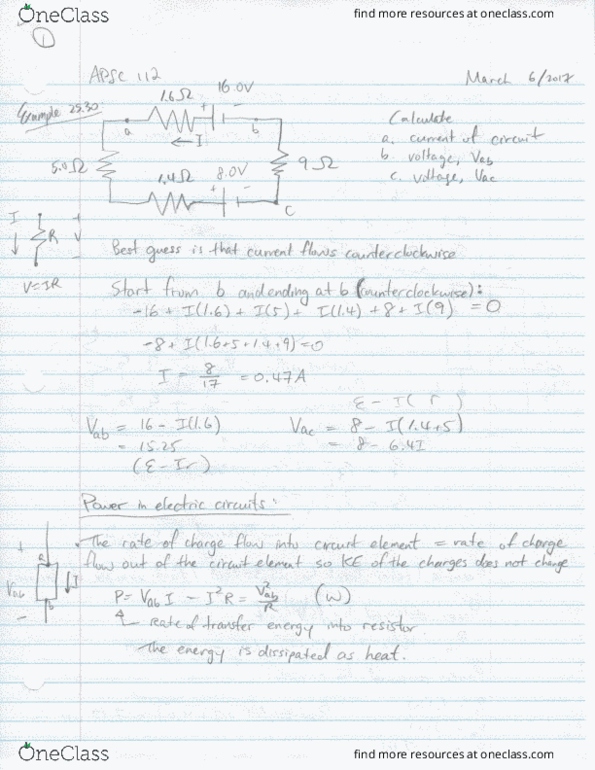 OneClass
find more resources at oneclass.com
1
APSC 112
March 6/2017
Example 25.30
1.6Ω
16.0V
+ -
a
b
← I
5.0Ω
9Ω
1.4Ω
8.0V
+ -
c
Calculate
a. current of circuit
b. voltage, Vab
c. voltage, Vac
I
R
+
V
-
V=IR
Best guess is that current flows counterclockwise
Start from b and ending at b (counterclockwise):
-16 + I(1.6) + I(5) + I(1.4) + 8 + I(9) = 0
-8 + I(1.6+5+1.4+9)=0
I = 8/17 = 0.47A
ε - I( r )
Vab = 16 - I(1.6)
= 15.25
(ε - Ir)
Vac = 8 - I(1.4+5)
= 8 - 6.4I
Power in electric circuits:
• The rate of charge flow into circuit element = rate of charge
flow out of the circuit element so KE of the charges does not change
+
a
Vab
↓I
b
-
P= VabI - I²R = V²ab/R (W)
rate of transfer energy into resistor
The energy is dissipated as heat.
OneClass
find more resources at oneclass.com